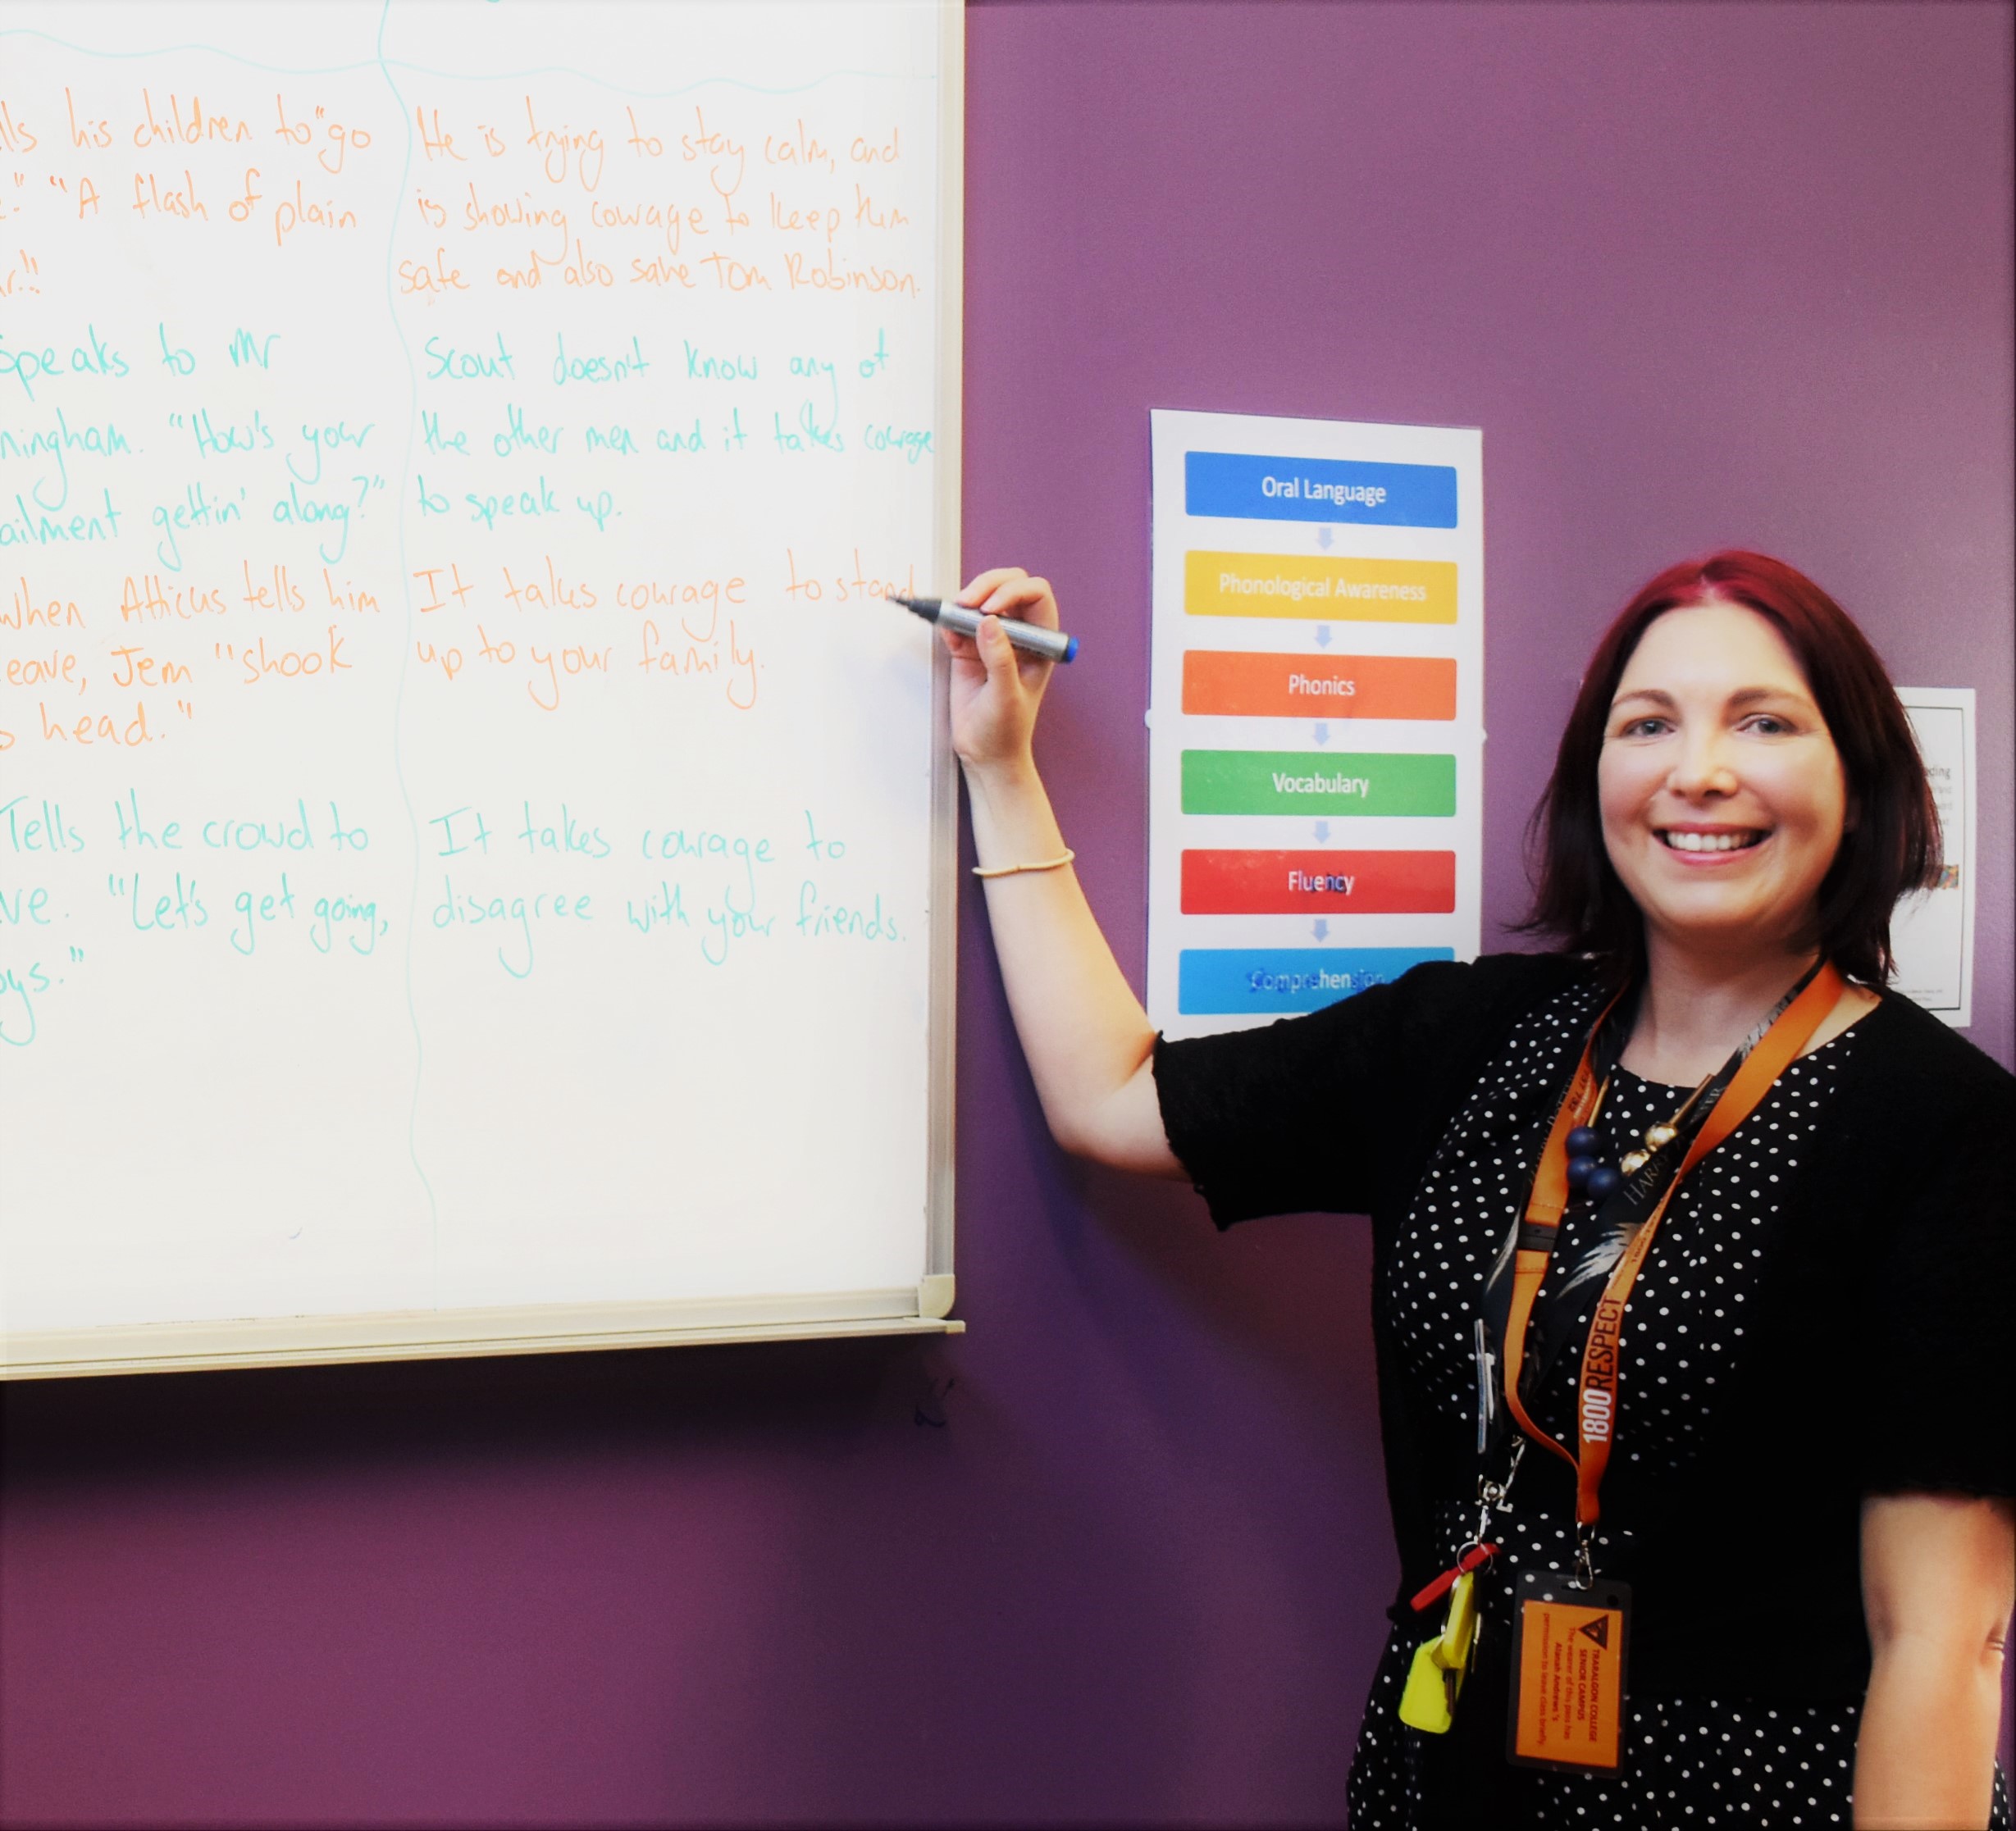 his children to "go
." "A flash of plain
!!
He is trying to stay calm, and
is showing courage to keep them
safe and also save Tom Robinson.
Speaks to Mr
ningham. "How's your
ailment gettin' along?"
Scout doesn't know any of
the other men and it takes courage
to speak up.
when Atticus tells him
eave, Jem "shook
s head."
It takes courage to stand
up to your family.
Tells the crowd to
ve. "Let's get going,
oys."
It takes courage to
disagree with your friends.
Oral Language
Phonological Awareness
Phonics
Vocabulary
Fluency
Comprehension
1800RESPECT
TRARALGON COLLEGE
SENIOR CAMPUS
The wearer of this pass has
permission to leave class briefly.